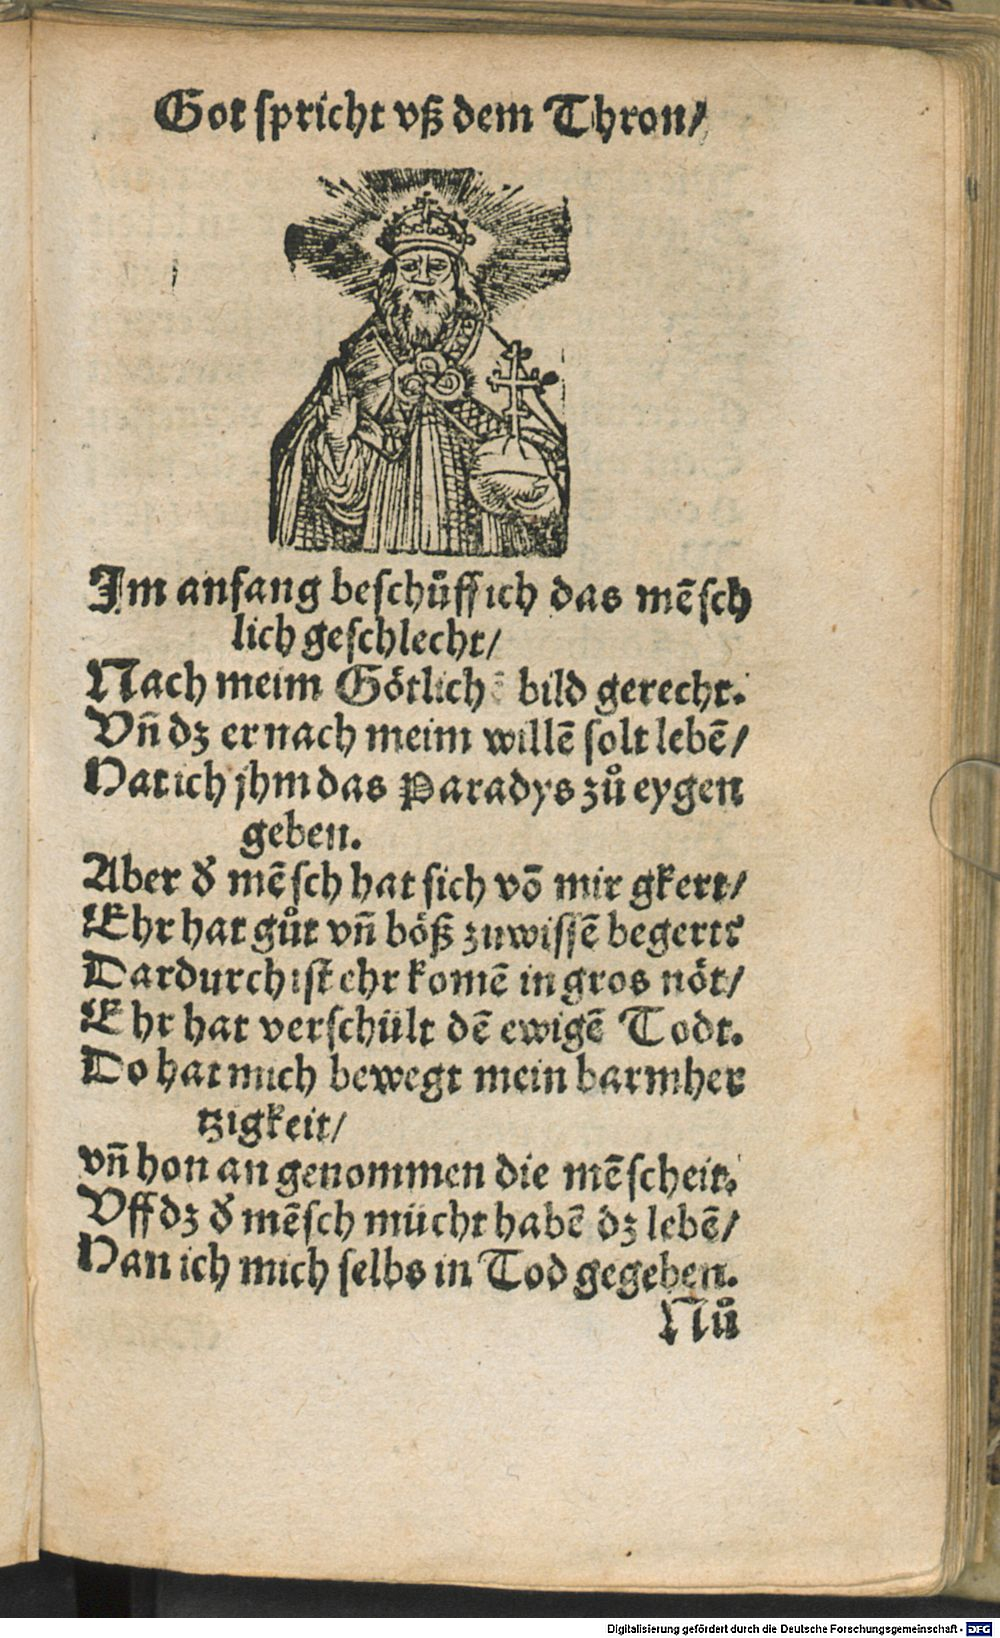 Got spricht vß dem Thron/
Im anfang beschuͤff ich das mēsch
lich geschlecht/
Nach meim Goͤtlichē bild gerecht.
Vn̄ dz er nach meim willē solt lebē/
Hat ich jhm das Paradys zuͦ eygen
geben.
Aber d̕ mēsch hat sich vō mir gkert/
Ehr hat guͦt vn̄ boͤß zuwissē begert:
Dardurch ist ehr komē in gros noͤt/
Ehr hat verschült dē ewigē Todt.
Do hat mich bewegt mein barmher
tzigkeit/
vn̄ hon an genommen die mēscheit.
Vff dz d̕ mēsch mücht habē dz lebē/
Han ich mich selbs in Tod gegeben.
Nuͦ
Digitalisierung gefördert durch die Deutsche Forschungsgemeinschaft - DFG